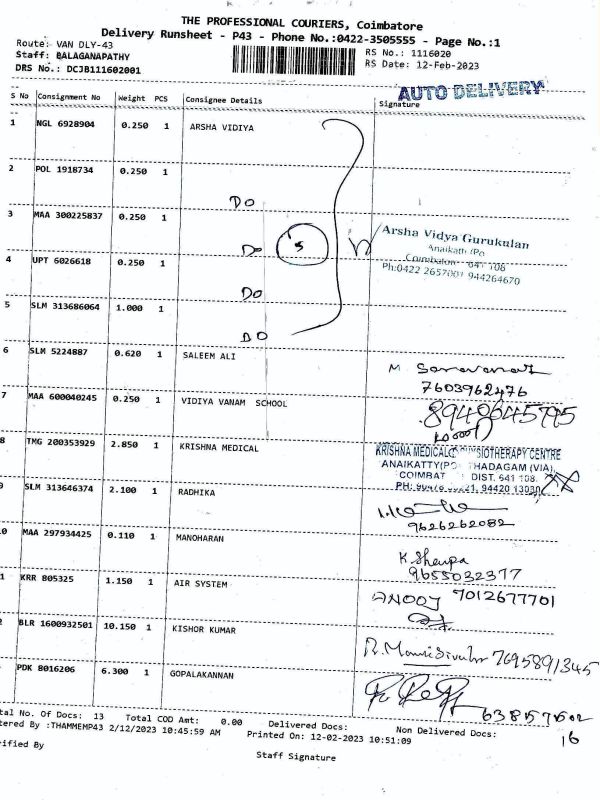 THE PROFESSIONAL COURIERS, Coimbatore
Delivery Runsheet - P43 - Phone No.:0422-3505555 - Page No.:1
Route: VAN DLY-43
RS No.: 1116020
Staff: BALAGANAPATHY
RS Date: 12-Feb-2023
DRS No.: DCJB111602001
AUTO DELIVERY
S No Consignment No Weight PCS Consignee Details Signature
1 NGL 6928904 0.250 1 ARSHA VIDIYA
2 POL 1918734 0.250 1
DO
3 MAA 300225837 0.250 1
Arsha Vidya Gurukulam
Anaikatti (Po
Coimbatore - 641 108
DO 5
4 UPT 6026618 0.250 1
Ph:0422 2657001 944264670
DO
5 SLM 313686064 1.000 1
DO
6 SLM 5224887 0.620 1 SALEEM ALI
M
7603962476
7 MAA 600040245 0.250 1 VIDIYA VANAM SCHOOL
8 TMG 200353929 2.850 1 KRISHNA MEDICAL
KRISHNA MEDICAL SIOTHERAPY CENTRE
ANAIKATTY(PO THADAGAM (VIA),
COIMBAT DIST. 641 108.
9 SLM 313646374 2.100 1 RADHIKA
9626262082
0 MAA 297934425 0.110 1 MANOHARAN
9655032377
1 KRR 805325 1.150 1 AIR SYSTEM
ANOOJ 7012677701
2 BLR 1600932501 10.150 1 KISHOR KUMAR
7695891345
PDK 8016206 6.300 1 GOPALAKANNAN
tal No. Of Docs: 13 Total COD Amt: 0.00 Delivered Docs: Non Delivered Docs:
16
tered By :THAMMEMP43 2/12/2023 10:45:59 AM Printed On: 12-02-2023 10:51:09
rified By
Staff Signature